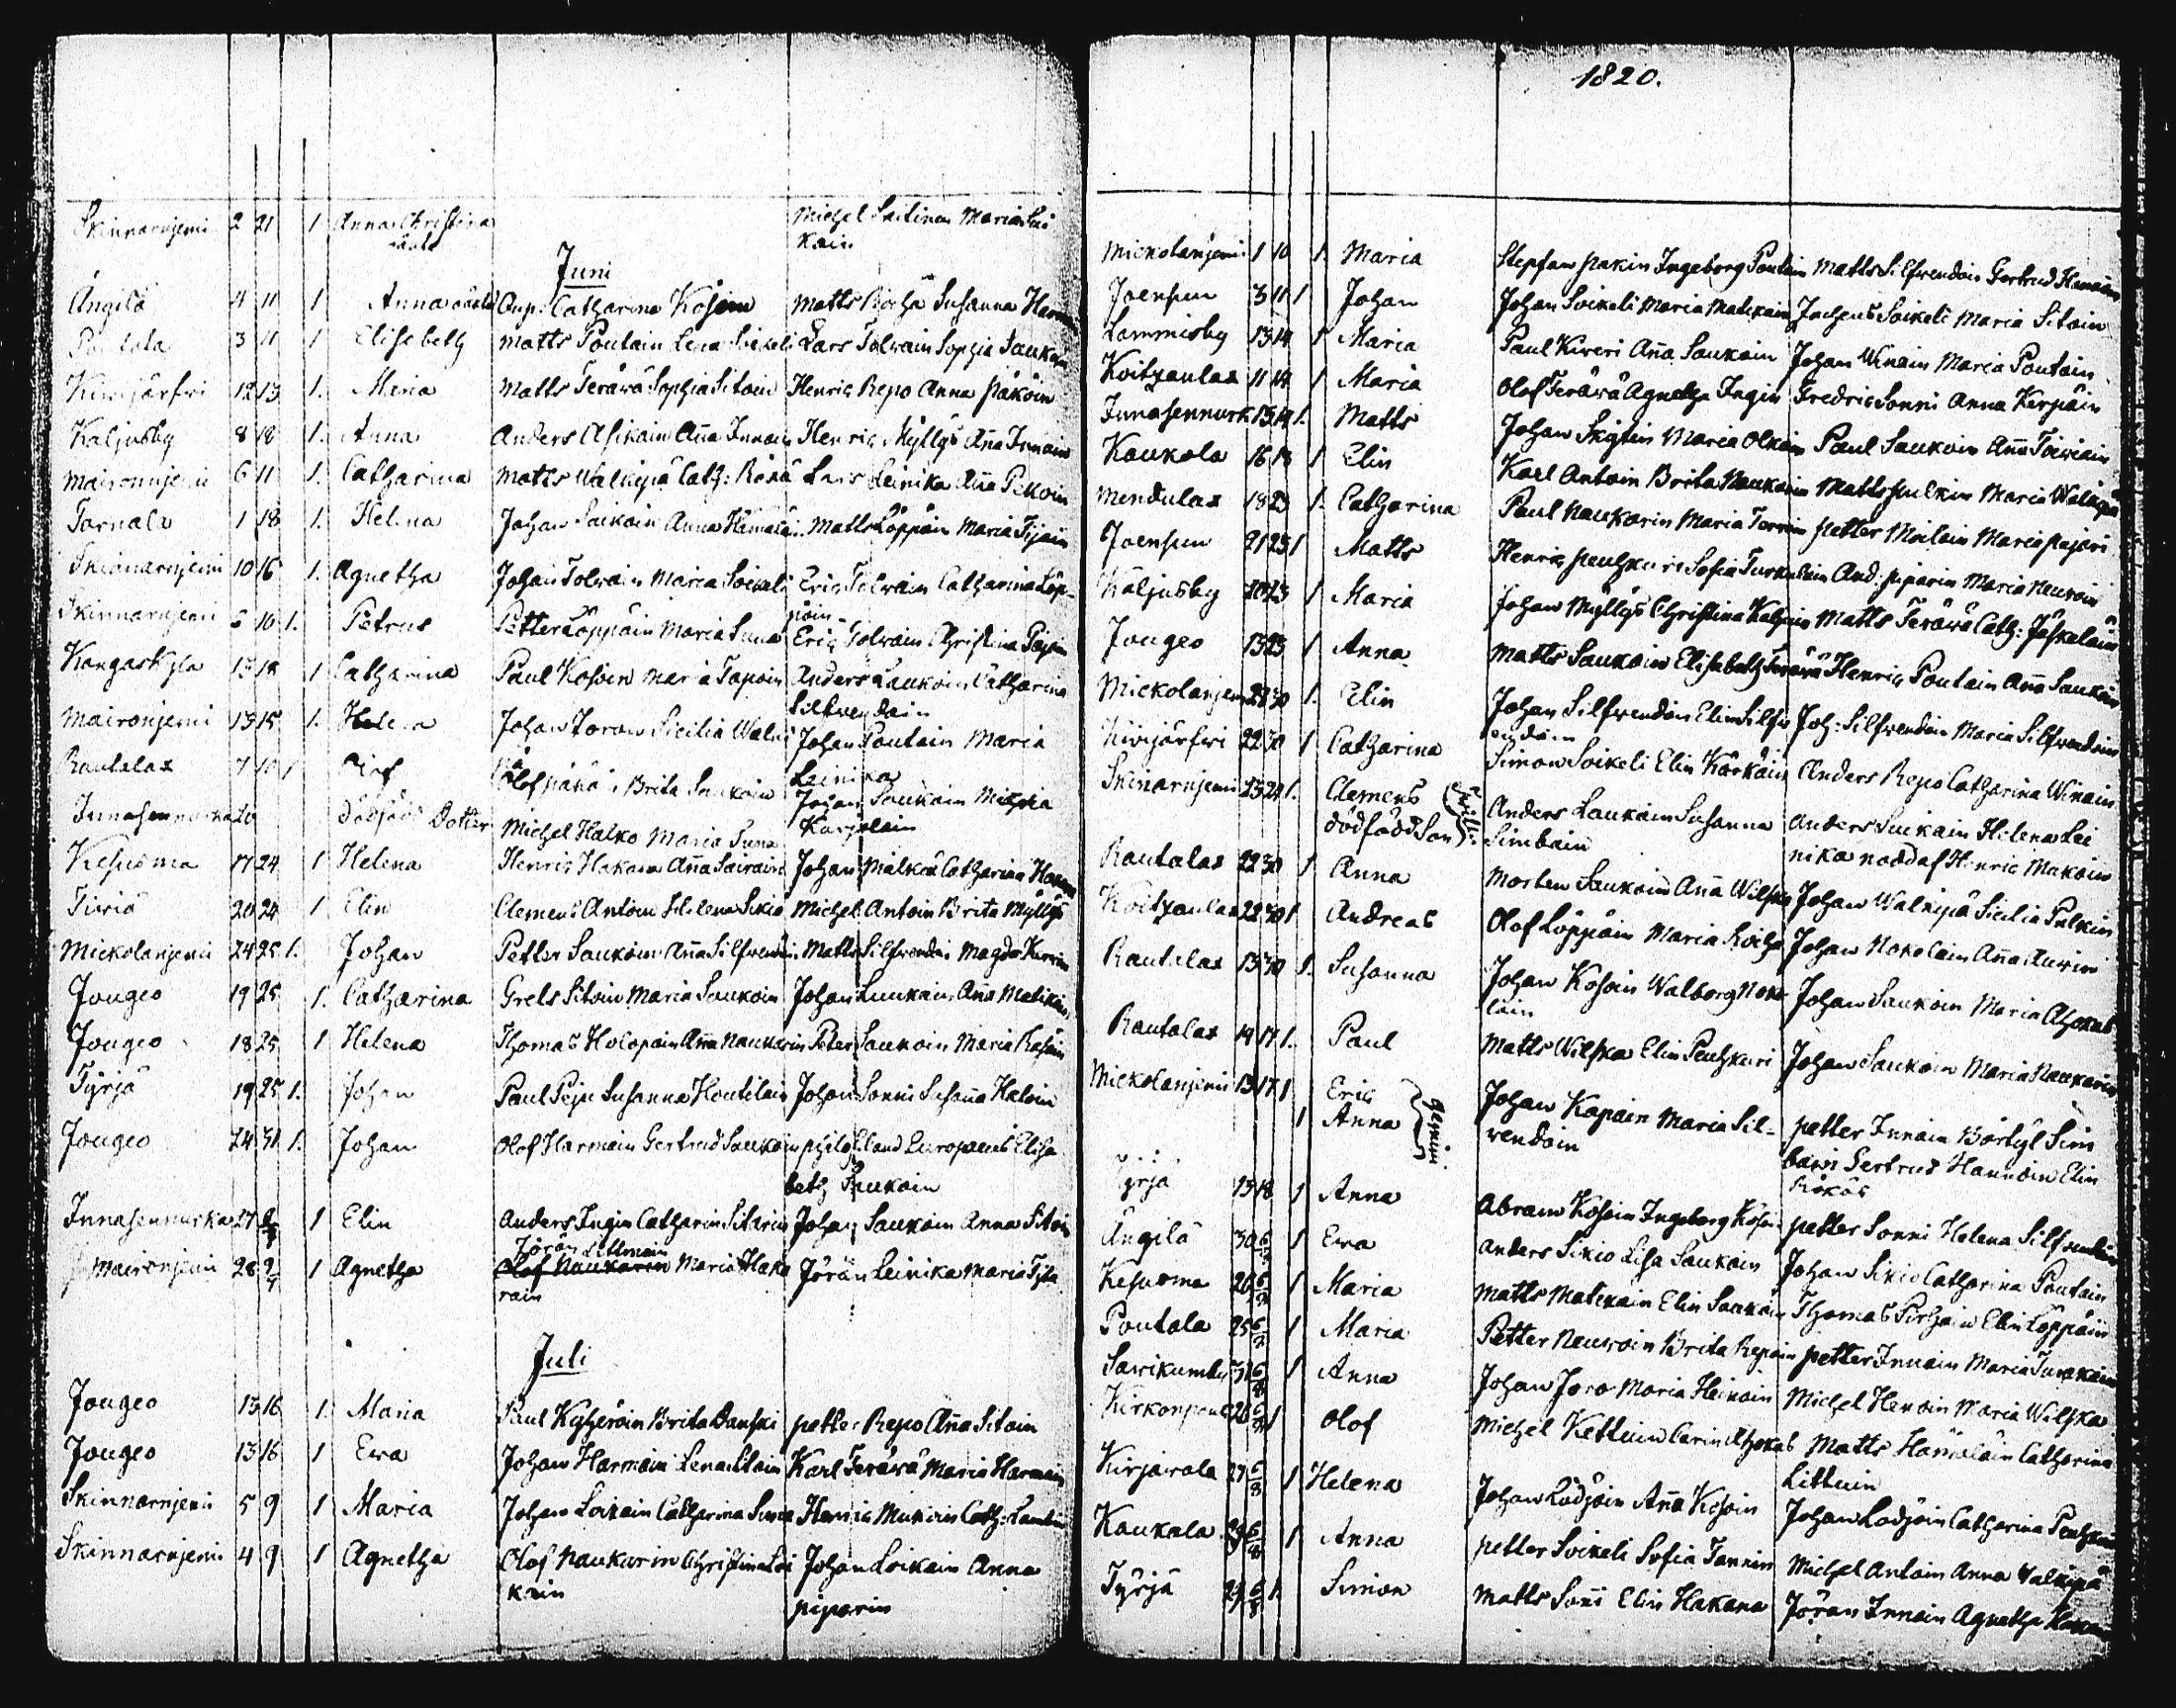 Skinnarnjemi 2 21 1 Anna Christina Michel Saitinen Maria Loi
oäkta kain
Juni
Ängilä 4 11 1 Anna oäkta Enp: Catharina Kosoin Matts Rocha Susanna Harmain
Poutala 3 11 1 Elisabeth Matts Poutain Lena Soikeli Lars Tolwain Sophia Saukoin
Kirjjärfvi 12 13 1. Maria Matts Teräwä Sophia Sitoin Henric Repo Anna Päköin
Kaljusby 8 18 1. Anna Anders Asikain Aña Innain Henric Myllys Aña Innain
Maironnjemi 6 11 1. Catharina Matts Walkipä Cath: Räsä Lars Leinika Aña Pekoin
Tarnala 1 18 1. Helena Johan Saikain Anna Hämäläi Matts Löppöin Maria Tijain
Skinnarnjemi 10 16 1. Agnetha Johan Tolwain Maria Soikeli Eric Tolwain Catharina Löp-
pöin
Skinnarnjemi 6 10 1. Petrus Petter Löppöin Maria Suna Eric Tolwain Christina Pajain
Kangaskyla 15 18 1 Catharina Paul Kosoin Maria Tapoin Anders Laukoin Catharina
Silfwendain
Maironjemi 13 15 1. Helena Johan Toron Sicilia Walki Johan Poutain Maria
pä Leinika
Rautalax 7 10 1 Olof Olof Päkä Brita Saukoin Johan Saukain Michia
Karjalain
Innasennurka 20 dödfödd Dotter Michel Halko Maria Suna
Kesusma 17 24 1 Helena Henric Hakana Aña Sairain Johan Malkiä Catharina Hakana
Tiuriä 20 24 1 Elin Clemens Antoin Helena Sikiö Michel Antoin Brita Myllys
Mickolanjemi 24 25 1. Johan Petter Saukoin Aña Silfwendoin Matts Silfwendoin Magda Kurvin
Jougeo 19 25 1. Catharina Grels Sitoin Maria Saukoin Johan Luukain Aña Matikain
Jougeo 18 25 1 Helena Thomas Holopain Aña Naukarin Peter Saukoin Maria Rasain
Tyrjä 19 25 1. Johan Paul Peju Susanna Houtilain Johan Sonni Susaña Haloin
Jougeo 24 31 1. Johan Olof Harmain Gertrud Saukoin phil: Eland Europaeus Elisa
beth Saukoin
Innasennurka 27 2/7 1 Elin Anders Ingin Catharin Sitarin Johan Saukoin Anna Sitoin
Jörän Littmain
Maironjemi 28 2/7 1 Agnetha Olof Naukarin Maria Haka Jörän Leinika Maria Tyta
rain
Juli
Jougeo 13 16 1. Maria Paul Kyheröin Brita Danski petter Repo Aña Sitoin
Jougeo 13 16 1 Ewa Johan Harmain Lena Sitoin Karl Teräwä Maria Harmain
Skinnarnjemi 5 9 1 Maria Johan Loikain Catharina Suna Henric Mukoin Cath: Lambin
Skinnarnjemi 4 9 1 Agnetha Olof Naukarin Christina Loi Johan Loikain Anna
kain piparin
1820.
Mickolanjemi 1 10 1. Maria Stephan Pakin Ingeborg Poutain Matts Silfwendoin Gertrud Hannöin
Joensun 3 11 1 Johan Johan Soikeli Maria Matikain Jachens Soikeli Maria Sitoin
Lammisby 13 14 1 Maria Paul Kiweri Aña Saukoin Johan Winain Maria Poutain
Koitzanlax 11 14 1 Maria Olof Teräwä Agnetha Ingin Fredric Sonni Anna Kerpäin
Innasennurk 13 14 1. Matts Johan Skytin Maria Olkoin Paul Saukoin Aña Toiwiain
Kaukola 16 18 1 Elin Karl Antoin Brita Naukarin Matts Pulkin Maria Walkipä
Mendulax 18 23 1. Catharina Paul Naukarin Maria Torvin petter Moilain Maria Pajari
Joensun 21 23 1 Matts Henric Penzkuri Sofia Turkulain And: piparin Maria Neuwoin
Kaljusby 20 23 1 Maria Johan Myllys Christina Kaljuin Matts Teräwä Cath: Jäskeläin
Jougeo 13 23 1 Anna Matts Saukoin Elisabeth Teräwä Henric Poutain Aña Saukoin
Mickolanjem 23 30 1. Elin Johan Silfwendoin Elin Silfw Joh: Silfwendoin Maria Silfwendoin
endoin
Kirjjärfvi 22 30 1 Catharina Simon Soikeli Elin Kärkäin Anders Repo Catharina Winain
Skinarnjemi 23 24 1. Clemens Anders Laukain Susanna Anders Suikain Helena Lei
dödfödd Son Simbain nika nöddöpt af Henric Mukoin
Rautalax 22 30 1 Anna Morten Saukoin Aña Wilska Johan Walkipä Sicilia Pulkin
Koitzanlax 22 30 1 Andreas Olof Löppöin Maria Rocha Johan Nokelain Aña Auwin
Rautalax 13 30 1. Susanna Johan Kosoin Walborg Noke Johan Saukoin Maria Ahokas
lain
Rautalax 14 17 1. Paul Matts Wilska Elin Penzkuri Johan Saukoin Maria Naukarin
Mickolanjemi 13 17 1 Eric Johan Kapain Maria Sil- petter Innain Bärtyl Sim
1 Anna gemini wendoin bain Gertrud Hannöin Elin
Tyrjä 13 18 1 Anna Abram Kosoin Ingeborg Kosoin petter Sonni Helena Silfwendoin
Ängilä 30 6/8 1 Ewa Anders Sikiö Lisa Saukoin Johan Sikiö Catharina Poutain
Kesusma 26 6/8 1 Maria Matts Matikain Elin Saukoin Thomas Pirhain Elin Löppöin
Poutala 25 6/8 1 Maria Petter Neuwoin Brita Repoin petter Innain Maria Turakain
Sarikumbu 31 6/8 1 Anna Johan Joro Maria Heinoin Michel Henoin Maria Wilska
Kirkonpoule 26 6/8 1 Olof Michel Kettuin Carin Ahokas Matts Hämäläin Catharina
Littuin
Kirjawala 27 6/8 1 Helena Johan Lodjoin Aña Kosoin Johan Lodjoin Catharina Penzkuri
Kaukala 29 6/8 1 Anna petter Soikeli Sofia Tannin Michel Antoin Anna Walkipä
Tyrjä 29 6/8 1. Simon Matts Soñi Elin Hakana Jöran Innain Agnetha Hakana